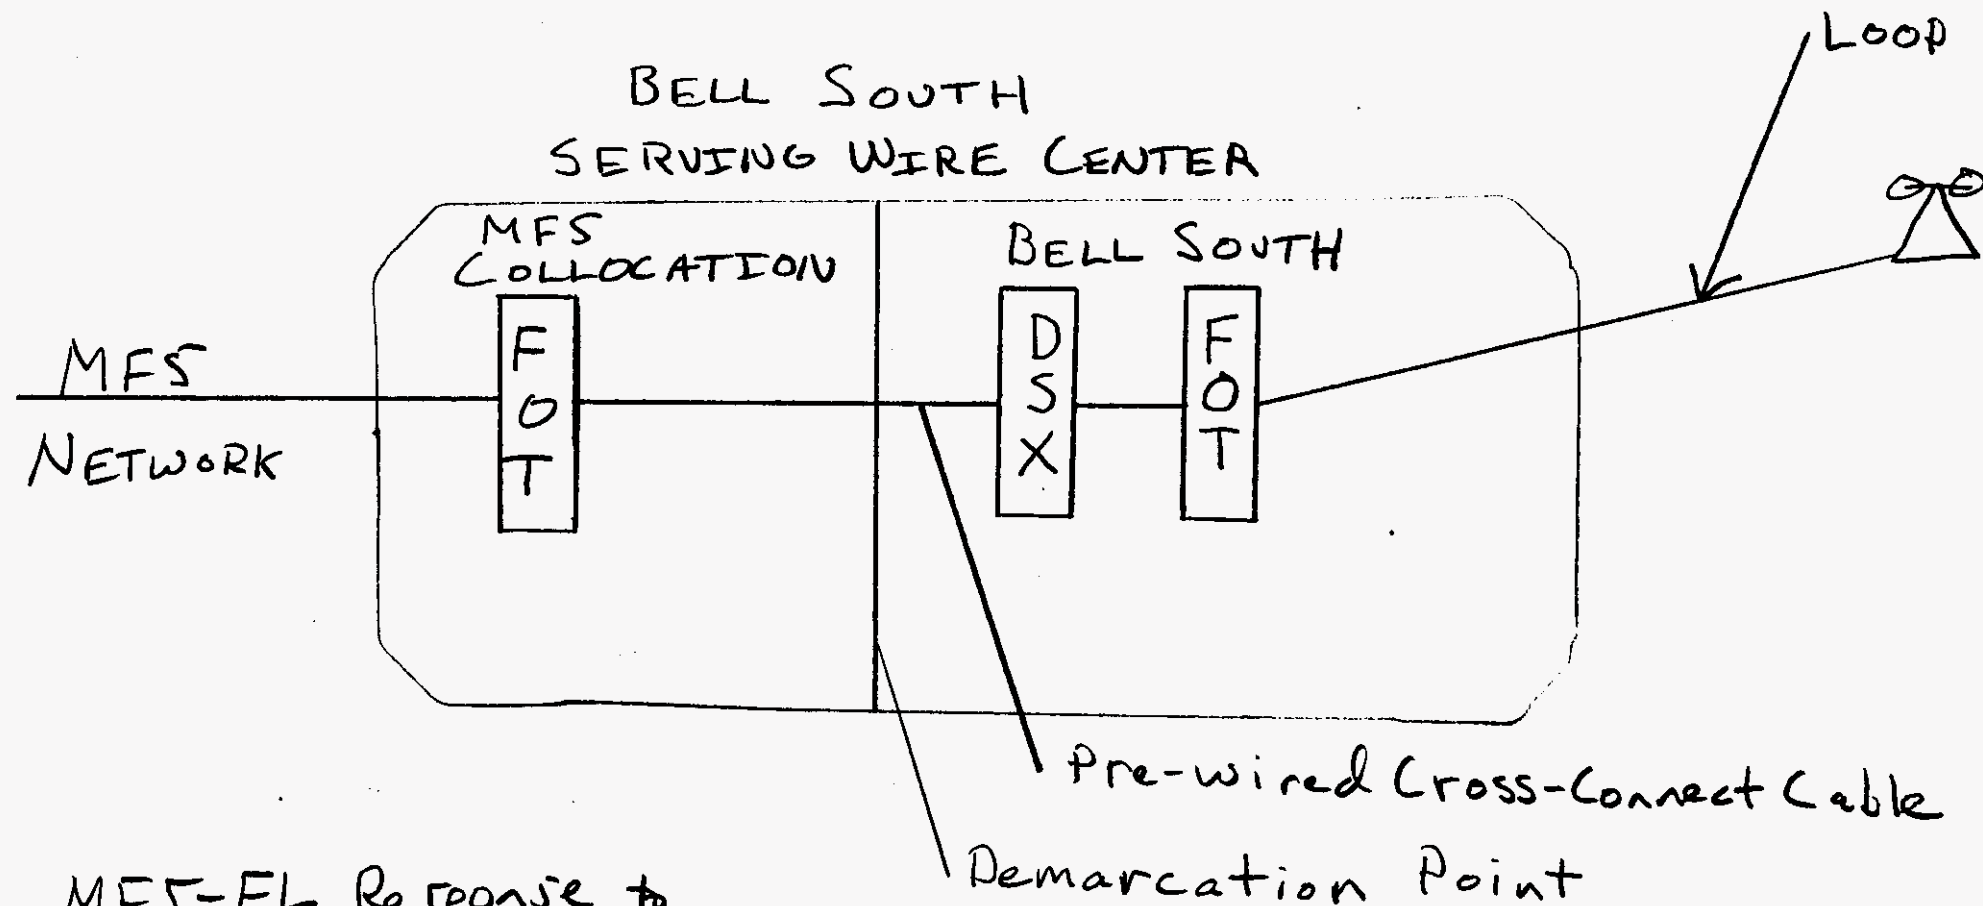 LOOP
BELL SOUTH
SERVING WIRE CENTER
MFS
COLLOCATION
BELL SOUTH
FOT
DSX
FOT
MFS
NETWORK
Pre-wired Cross-Connect Cable
Demarcation Point
MFS-FL Response to